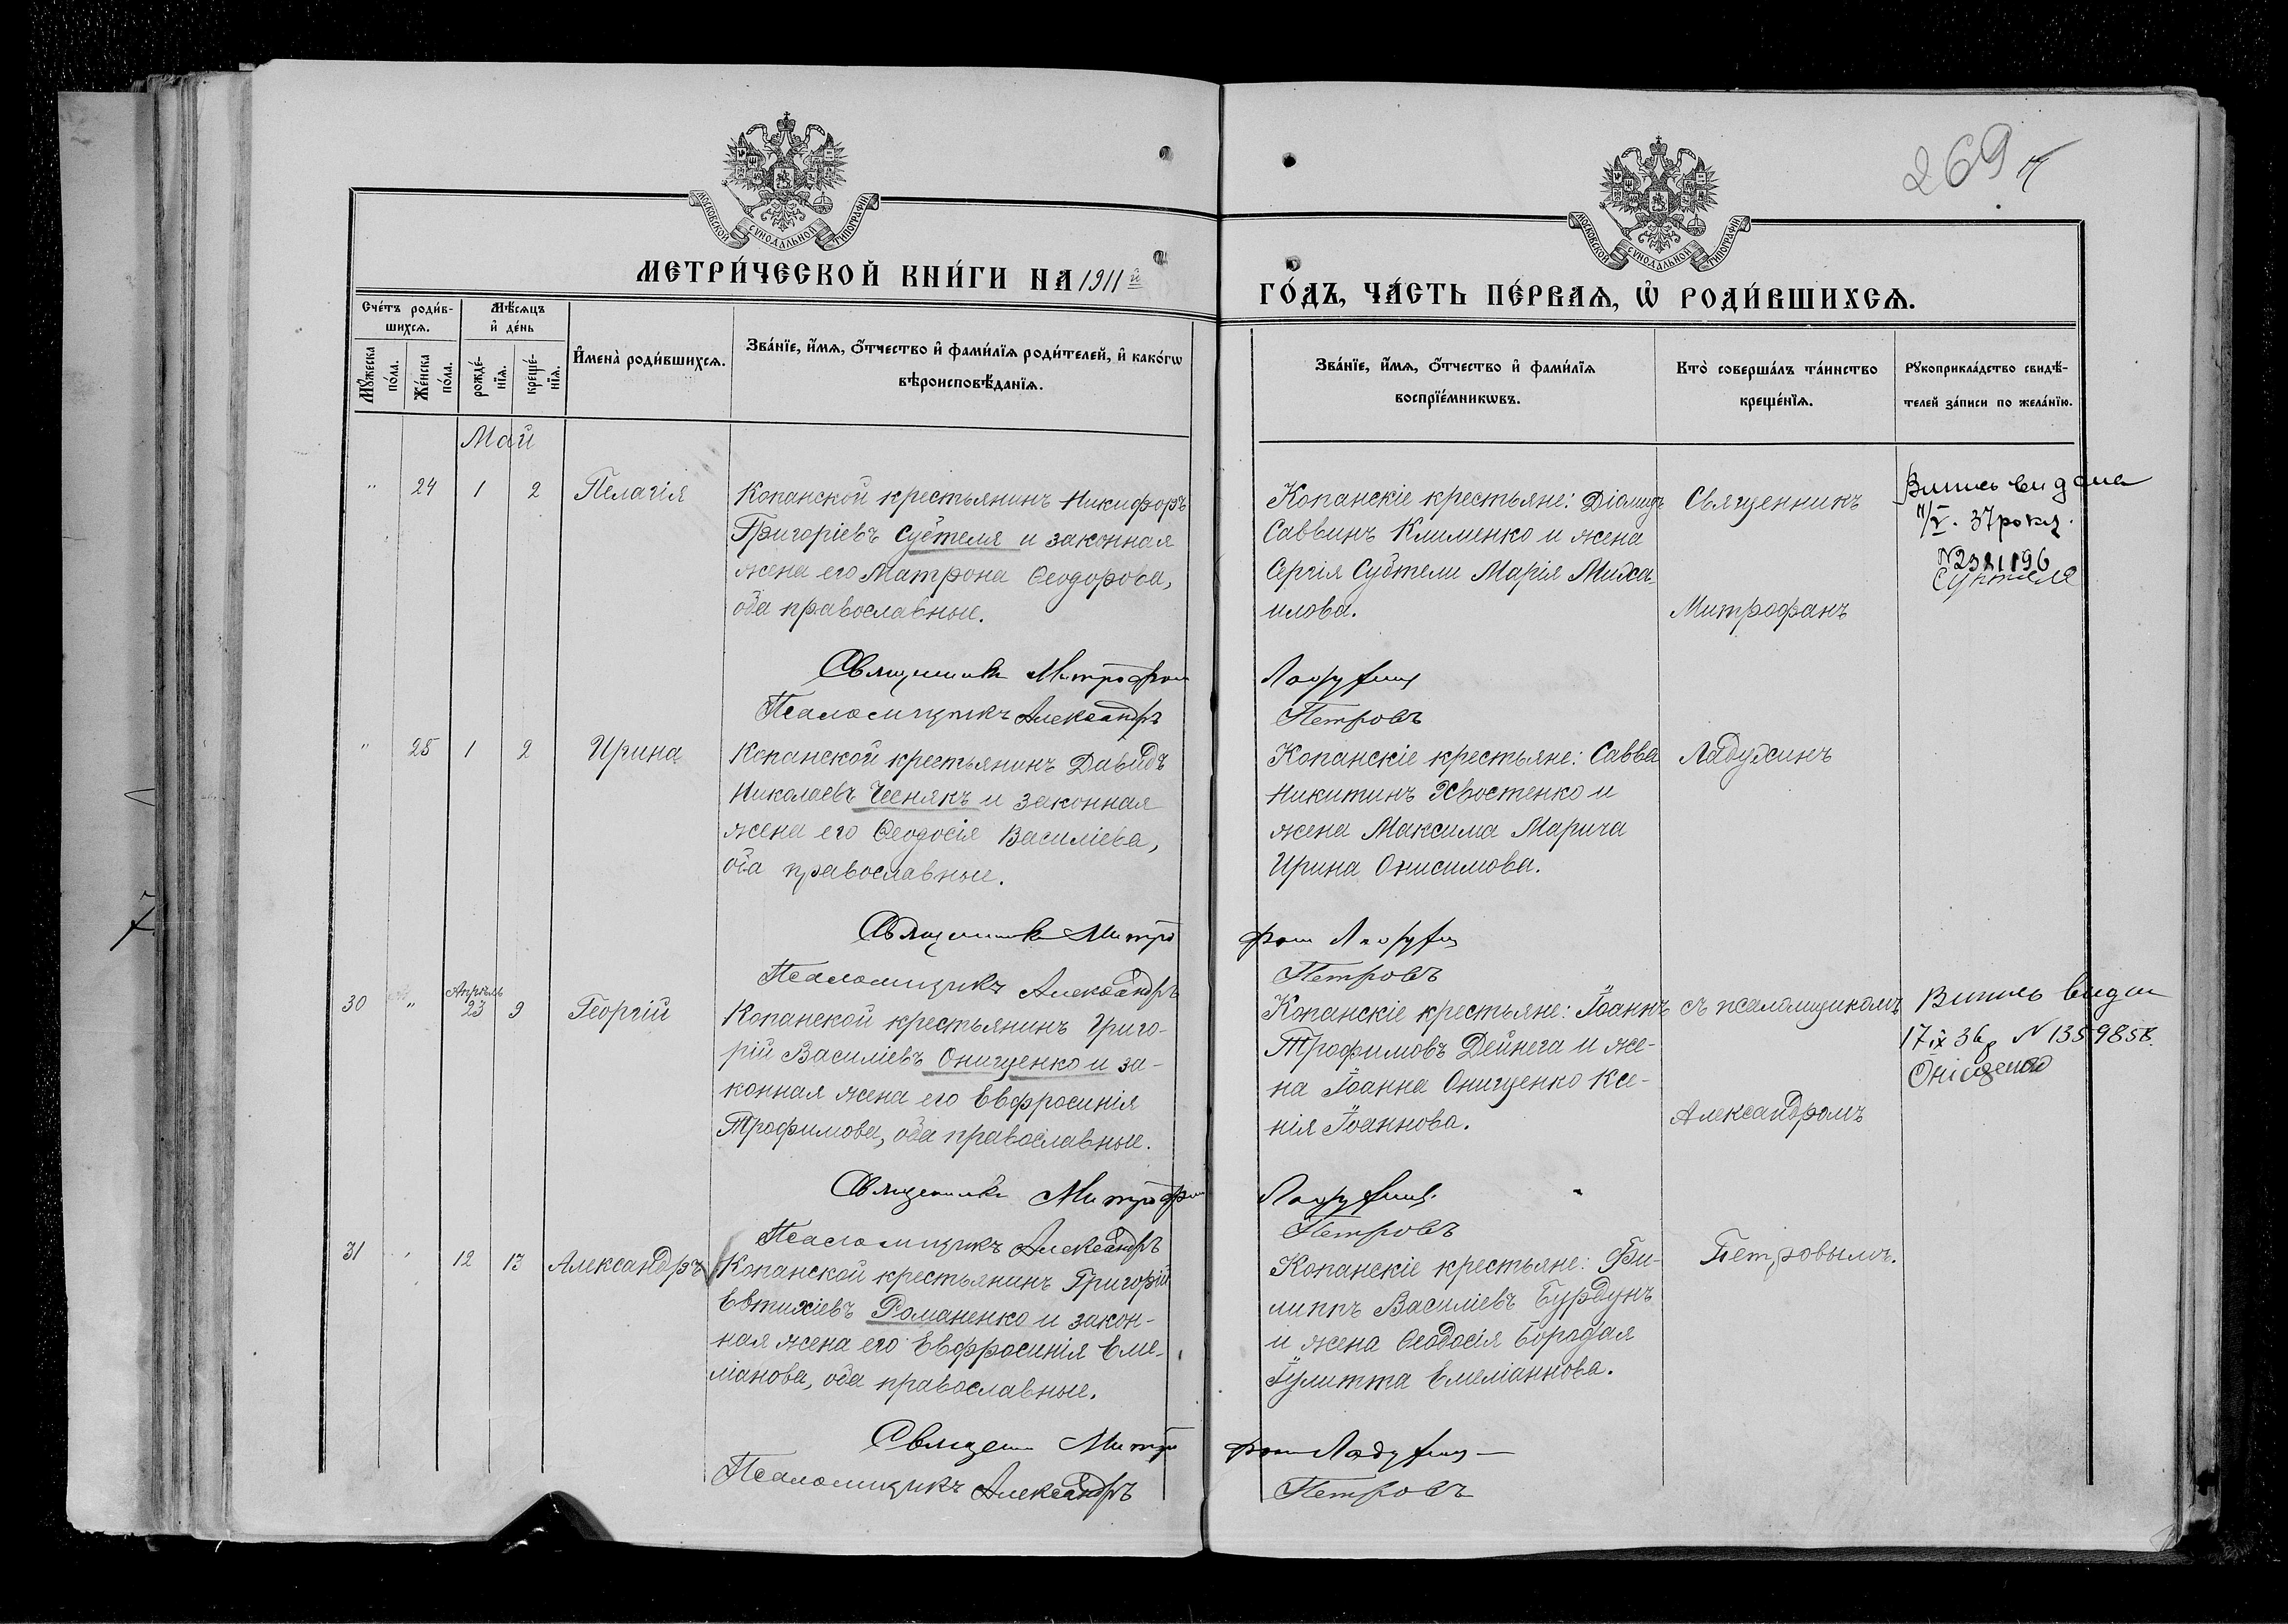 269
МОСКОВСКОЙ СУНОДАЛЬНОЙ ТИПОГРАФІИ
МОСКОВСКОЙ СУНОДАЛЬНОЙ ТИПОГРАФІИ
МЕТРИ́ЧЕСКОЙ КНИ́ГИ НА 1911 й
ГО́ДЪ, ЧА́СТЬ ПЕ́РВАѦ, Ѡ҆ РОДИ́ВШИХСѦ.
Сче́тъ роди́в-
шихсѧ.
Мѣ́сѧцъ
и҆ де́нь
Мꙋ́жеска
по́ла.
Же́нска
по́ла.
рожде́-
нїѧ.
креще́-
нїѧ.
И҆мена̀ роди́вшихсѧ.
Зва́нїе, и҆́мѧ, ѻ҆́тчество и҆ фами́лїѧ роди́телей, и҆ како́гѡ
вѣроисповѣ́данїѧ.
Зва́нїе, и҆́мѧ, ѻ҆́тчество и҆ фами́лїѧ
воспрїе́мникѡвъ.
Кто̀ соверша́лъ та́инство
креще́нїѧ.
Рꙋкоприкла́дство свидѣ́-
телей за́писи по жела́нїю.
Май
" 24 1 2 Пелагія
Копанской крестьянинъ Никифоръ
Григоріевъ Субтеля и законная
жена его Матрона Ѳеодорова,
оба православные.
Копанскіе крестьяне: Діомидъ
Саввинъ Клименко и жена
Сергія Субтели Марія Миха-
илова.
Священникъ
Митрофанъ
Випись видана
11/V. 37 року.
Суптеля
Священникъ Митрофанъ Ладухинъ
Псаломщикъ Александръ Петровъ
" 25 1 2 Ирина
Копанской крестьянинъ Давидъ
Николаевъ Чеснякъ и законная
жена его Ѳеодосія Василіева,
оба православные.
Копанскіе крестьяне: Савва
Никитинъ Хвостенко и
жена Максима Марича
Ирина Онисимова.
Ладухинъ
Священникъ Митрофанъ Ладухинъ
Псаломщикъ Александръ Петровъ
30 " Апрѣль 23 9 Георгій
Копанской крестьянинъ Григо-
рій Василіевъ Онищенко и за-
конная жена его Евфросинія
Трофимова, оба православные.
Копанскіе крестьяне: Іоаннъ
Трофимовъ Дейнега и же-
на Іоанна Онищенко Ксе-
нія Іоаннова.
съ псаломщикомъ
Александромъ
Випись видан
17 ІХ 36 р № 1359858.
Оніщенко
Священникъ Митрофанъ Ладухинъ
Псаломщикъ Александръ Петровъ
31 " 12 13 Александръ
Копанской крестьянинъ Григорій
Евтихіевъ Романенко и закон-
ная жена его Евфросинія Еме-
ліанова, оба православные.
Копанскіе крестьяне: Фи-
липпъ Василіевъ Бурдунъ
и жена Ѳеодосія Бородая
Іулитта Емеліаннова.
Петровымъ.
Священникъ Митрофанъ Ладухинъ
Псаломщикъ Александръ Петровъ